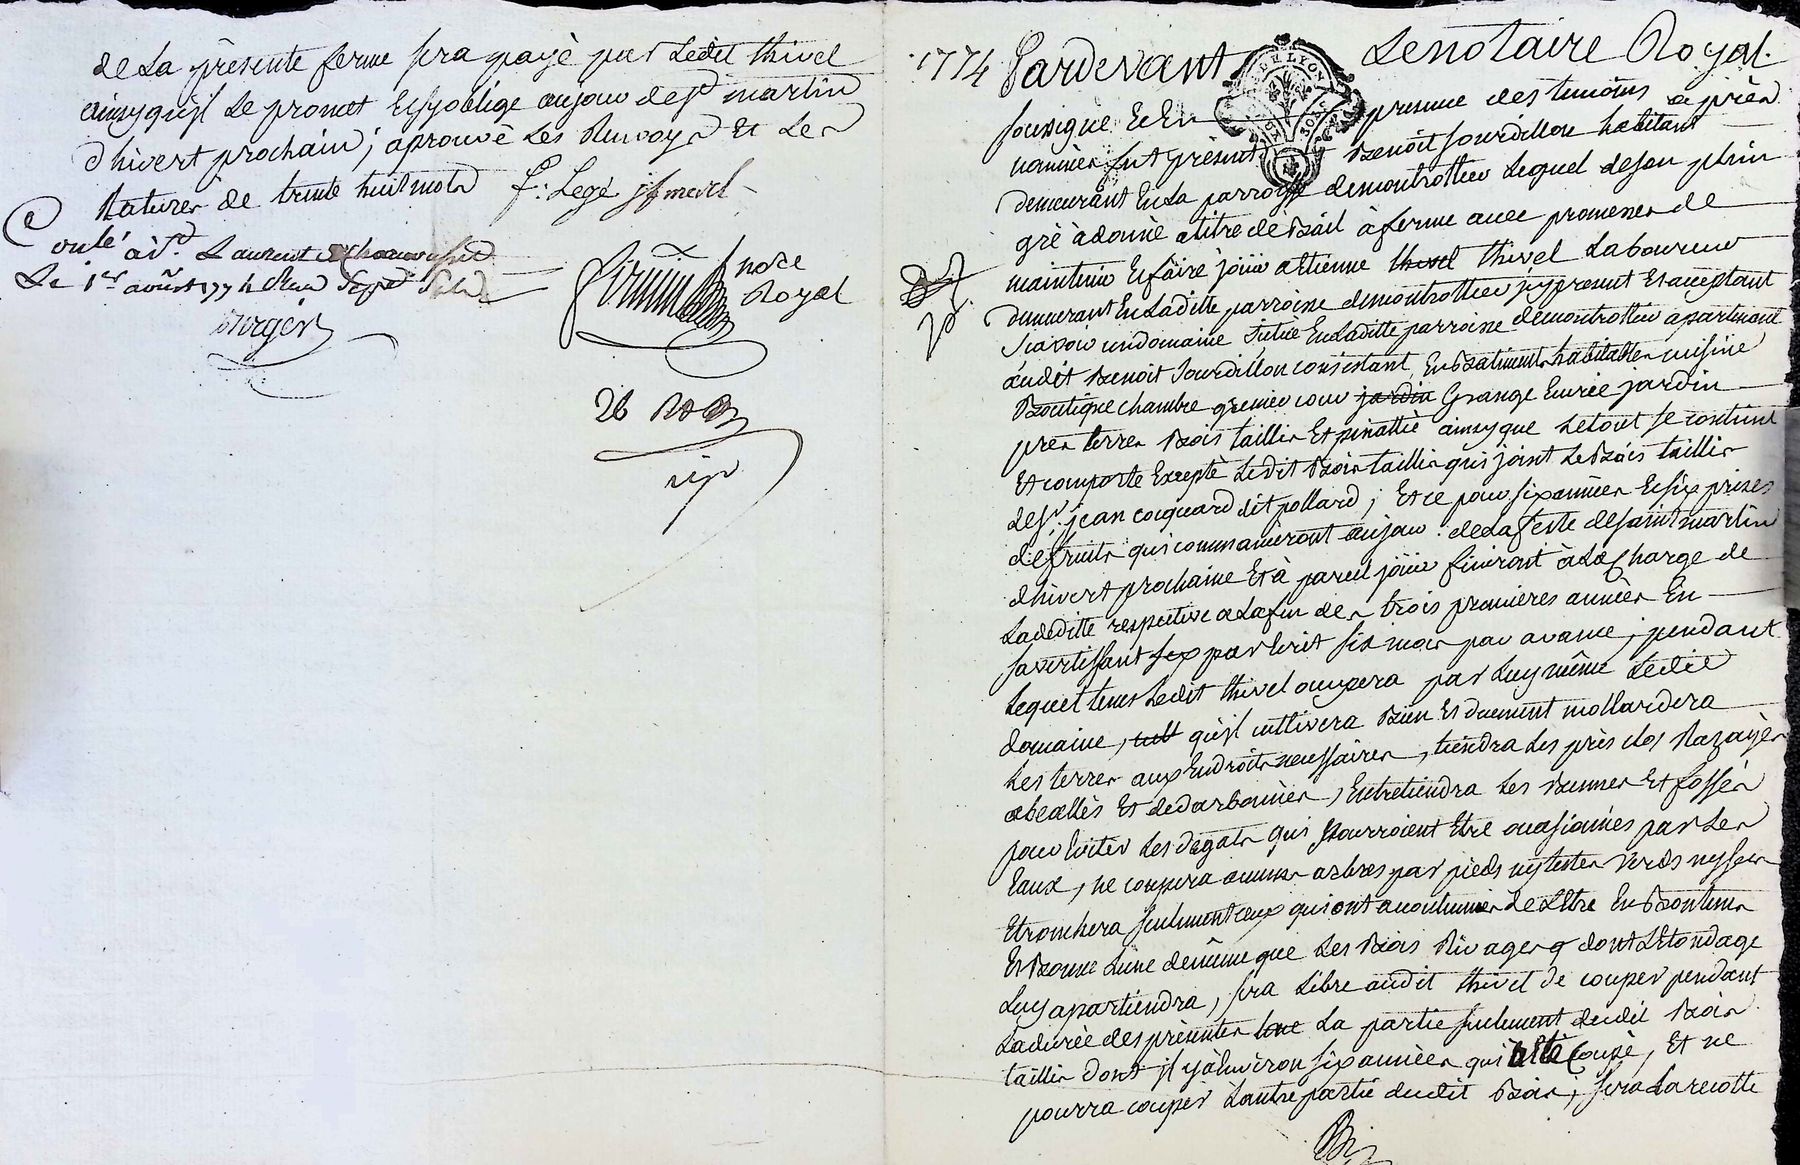 de La présente ferme sera payé par Ledit thivel
ainsy qu'jl Le promet Et sy oblige au jour de st martin
d'hivert prochain; aprouvé Les Renvoys Et Les
Raturer de trente huit mots f: Legé
Conlé à Laurent
Le 1er aoust 1774
notre
Royal
Berger
26
1774 Pardevant Le notaire Royal
soussigné Et En presence des temoins après
nommés fut présent Benoit Sourdillon habitant
demeurant En La parroisse de montrottier Lequel de son plein
gré à donné a titre de Bail à ferme avec promesse de
maintenir Et faire joüir a Etienne thivel thivel Laboureur
demeurant En Laditte parroisse de montrottier jcy present Et acceptant
sçavoir un domaine scitué En Laditte parroisse de montrottier apartenant
audit Benoit Sourdillon consistant En Batiments habitables cuisine
Boutique chambre grenier cour jardin Grange Ecurie jardin
prés terres Bois taillis Et pinattée ainsy que Le tout se contient
Et comporte Excepté Ledit Bois taillis qui joint Le Bois taillis
de sr. jean cocquard dit pollard; Et ce pour six années Et six prises
de fruits qui commanceront au jour de La feste de saint martin
d'hivert prochaine Et à pareil jour finiront à La Charge de
La deditte respective a La fin des trois premieres années En
savertissant sex par Ecrit six mois par avance; pendant
Lequel tems Ledit thivel ocupera par Luy même Ledit
domaine, cult qu'jl cultivera Bien Et duement mollardera
Les terres aux Endroits necessaires, tiendra Les près clos Razayés
abeallés Et dedarbonnés, Entretiendra Les Bennes Et fossés
pour Eviter Les degats qui pourroient Etre ocasionnés par Les
Eaux, ne coupera aucuns arbres par pieds ny testes verds ny secs
Etronchera seulement ceux qui ont acoutumés de L'Etre En Bon tems
Et Bonne Lune de même que Les Bois Rivagers dont L'Etondage
Luy apartiendra, sera Libre audit thivel de couper pendant
La durée des présentes La partie seulement dudit Bois
taillis dont jl y à Environ six années qui a Eté Coupé, Et ne
pourra couper L'autre partie dudit Bois; fera La recotte